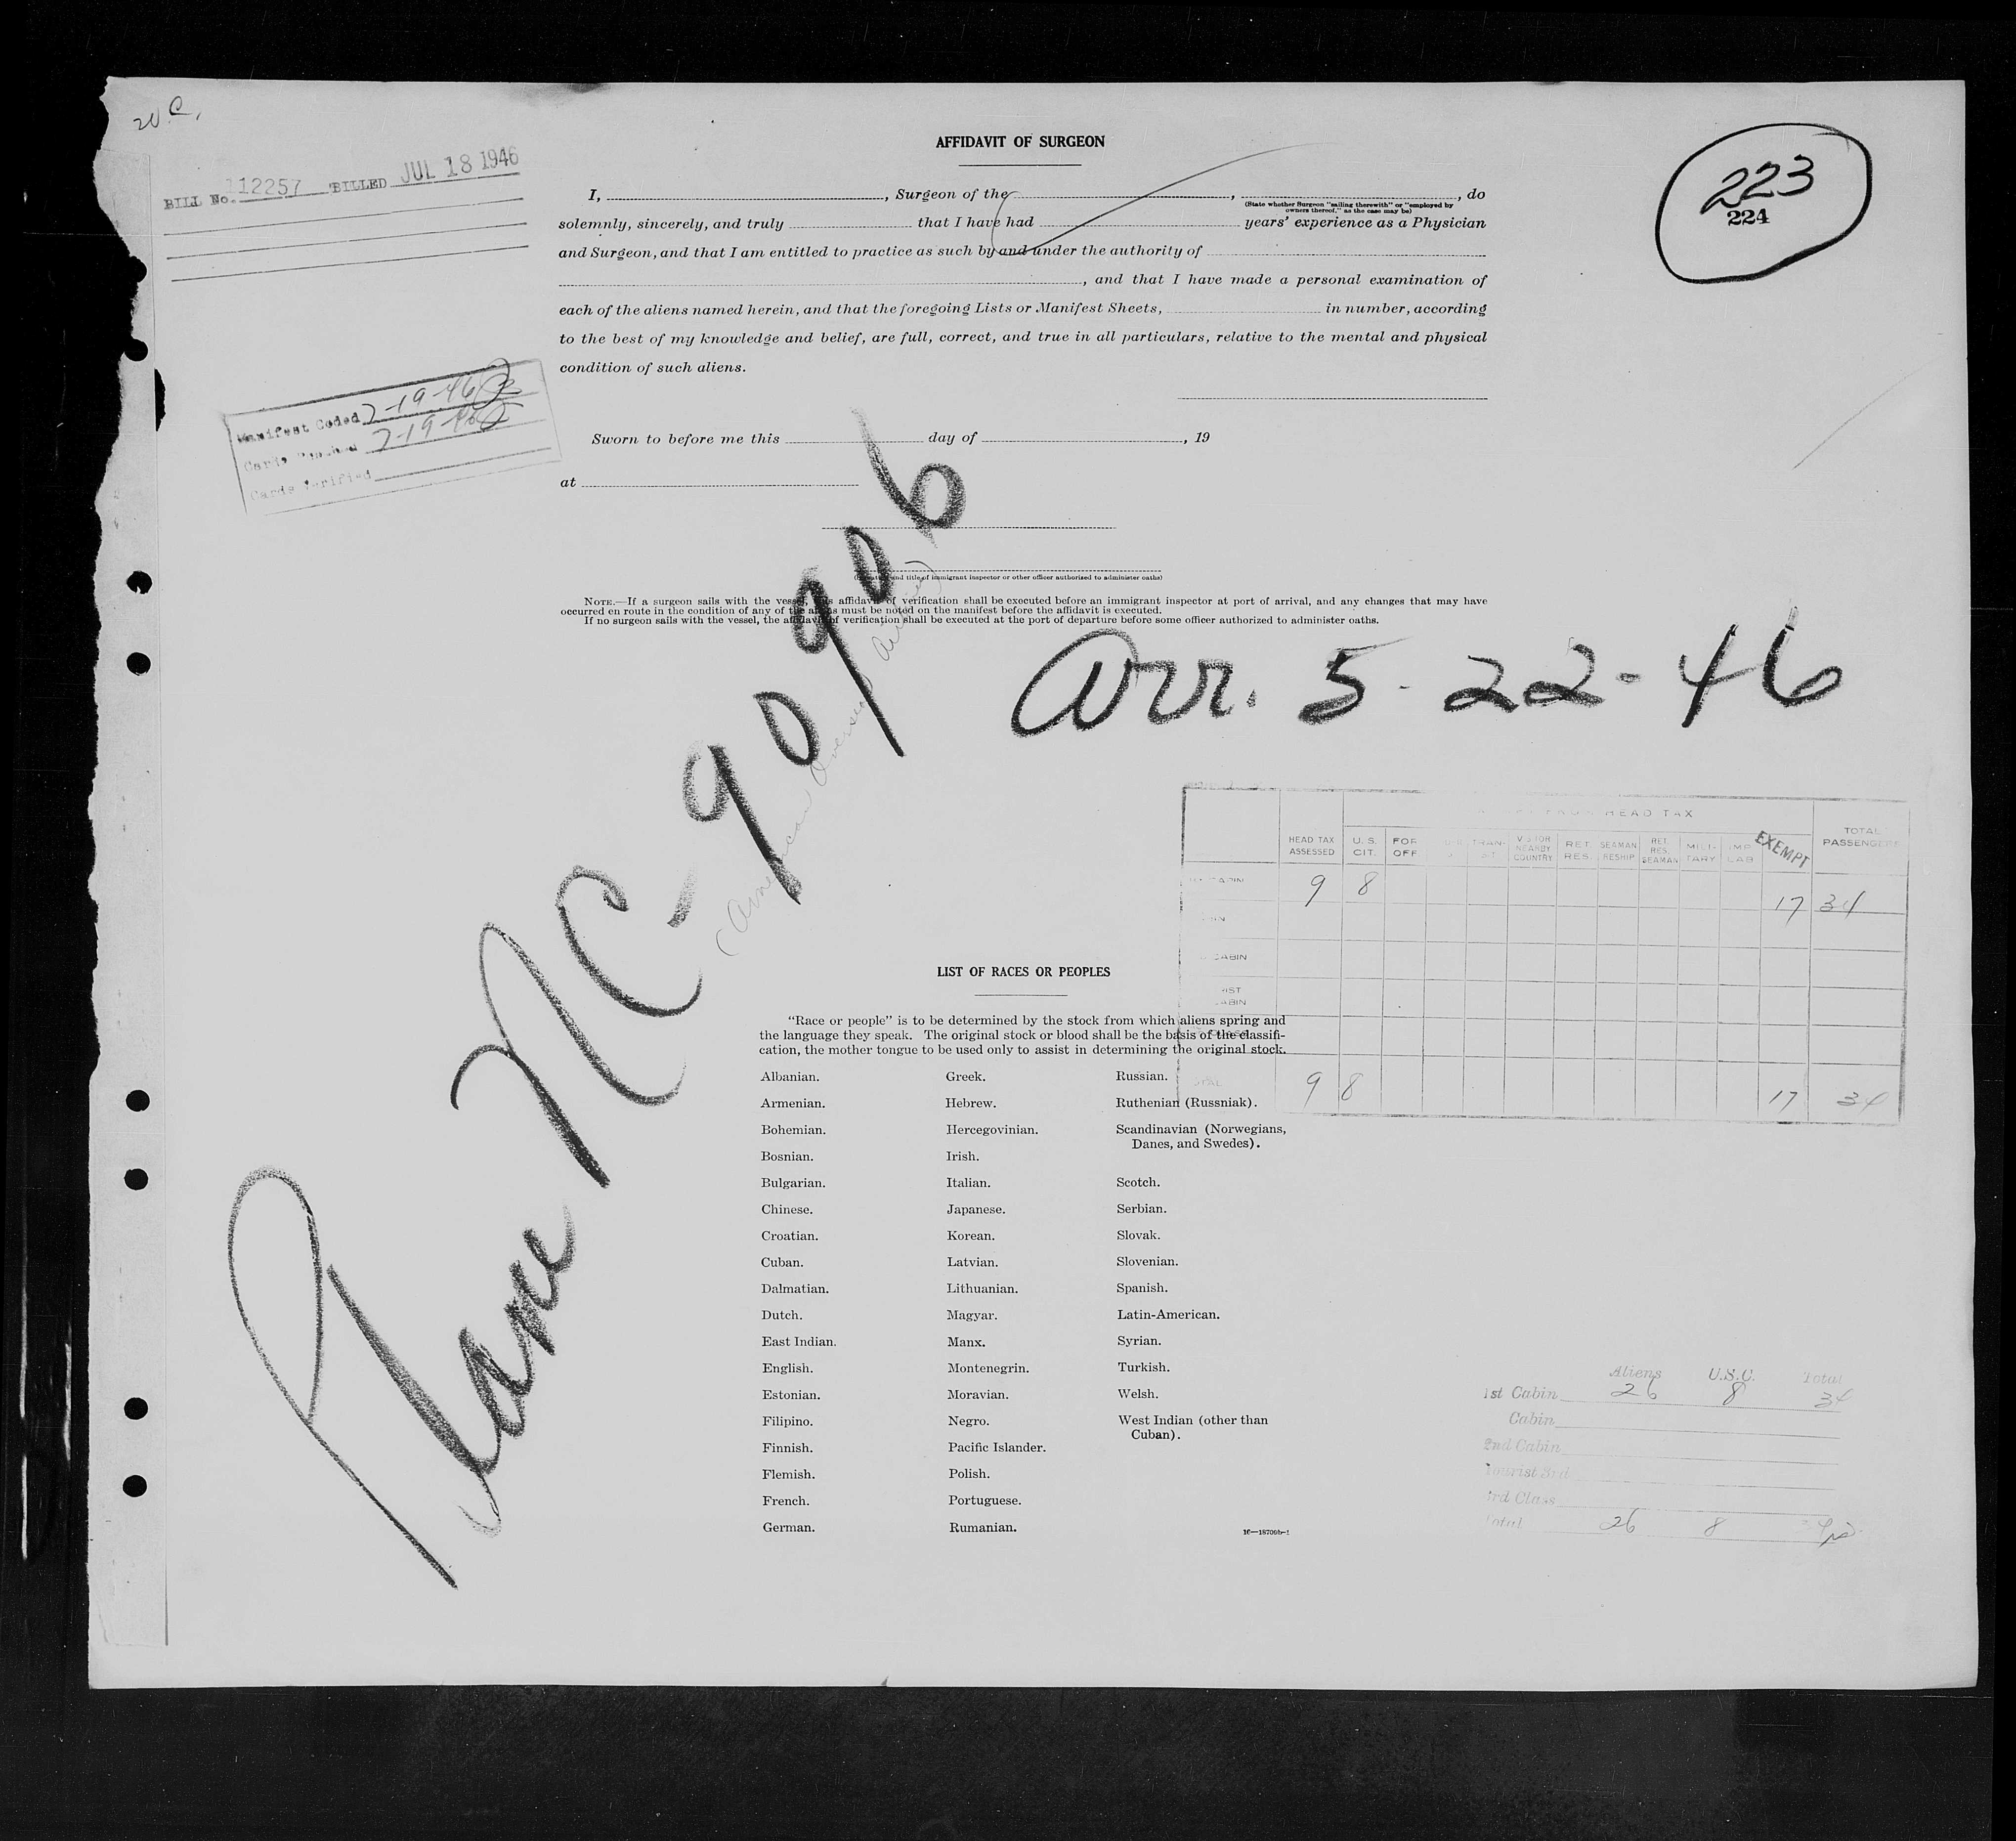 AFFIDAVIT OF SURGEON
223
224
BILL No. 112257 BILLED JUL 18 1946
I, , Surgeon of the , , do
(State whether Surgeon "sailing therewith" or "employed by
owners thereof," as the case may be)
solemnly, sincerely, and truly that I have had years' experience as a Physician
and Surgeon, and that I am entitled to practice as such by and under the authority of
, and that I have made a personal examination of
each of the aliens named herein, and that the foregoing Lists or Manifest Sheets, in number, according
to the best of my knowledge and belief, are full, correct, and true in all particulars, relative to the mental and physical
condition of such aliens.
Manifest Coded 7-19-46
Cards Punched 7-19-46
Cards Verified
Sworn to before me this day of , 19
at
and title of immigrant inspector or other officer authorized to administer oaths)
NOTE.—If a surgeon sails with the vessel, this affidavit of verification shall be executed before an immigrant inspector at port of arrival, and any changes that may have
occurred en route in the condition of any of the aliens must be noted on the manifest before the affidavit is executed.
If no surgeon sails with the vessel, the affidavit of verification shall be executed at the port of departure before some officer authorized to administer oaths.
Plane NC-90906
(American Overseas Airlines)
Arr. 5-22-46
FROM HEAD TAX
HEAD TAX ASSESSED U.S. CIT. FOR OFF TRAN- VISITOR NEARBY COUNTRY RET. RES. SEAMAN RESHIP RET RES. SEAMAN MILI- TARY IMP LAB EXEMPT TOTAL PASSENGERS
CABIN 9 8 17 34
CABIN
CABIN
TOTAL 9 8 17 34
LIST OF RACES OR PEOPLES
"Race or people" is to be determined by the stock from which aliens spring and
the language they speak. The original stock or blood shall be the basis of the classifi-
cation, the mother tongue to be used only to assist in determining the original stock.
Albanian. Greek. Russian.
Armenian. Hebrew. Ruthenian (Russniak).
Bohemian. Hercegovinian. Scandinavian (Norwegians,
Danes, and Swedes).
Bosnian. Irish.
Bulgarian. Italian. Scotch.
Chinese. Japanese. Serbian.
Croatian. Korean. Slovak.
Cuban. Latvian. Slovenian.
Dalmatian. Lithuanian. Spanish.
Dutch. Magyar. Latin-American.
East Indian. Manx. Syrian.
English. Montenegrin. Turkish.
Estonian. Moravian. Welsh.
Filipino. Negro. West Indian (other than
Cuban).
Finnish. Pacific Islander.
Flemish. Polish.
French. Portuguese.
German. Rumanian.
16—18709b-1
Aliens U.S.C. Total
1st Cabin 26 8 34
Cabin
2nd Cabin
Tourist 3rd
3rd Class
Total 26 8 34